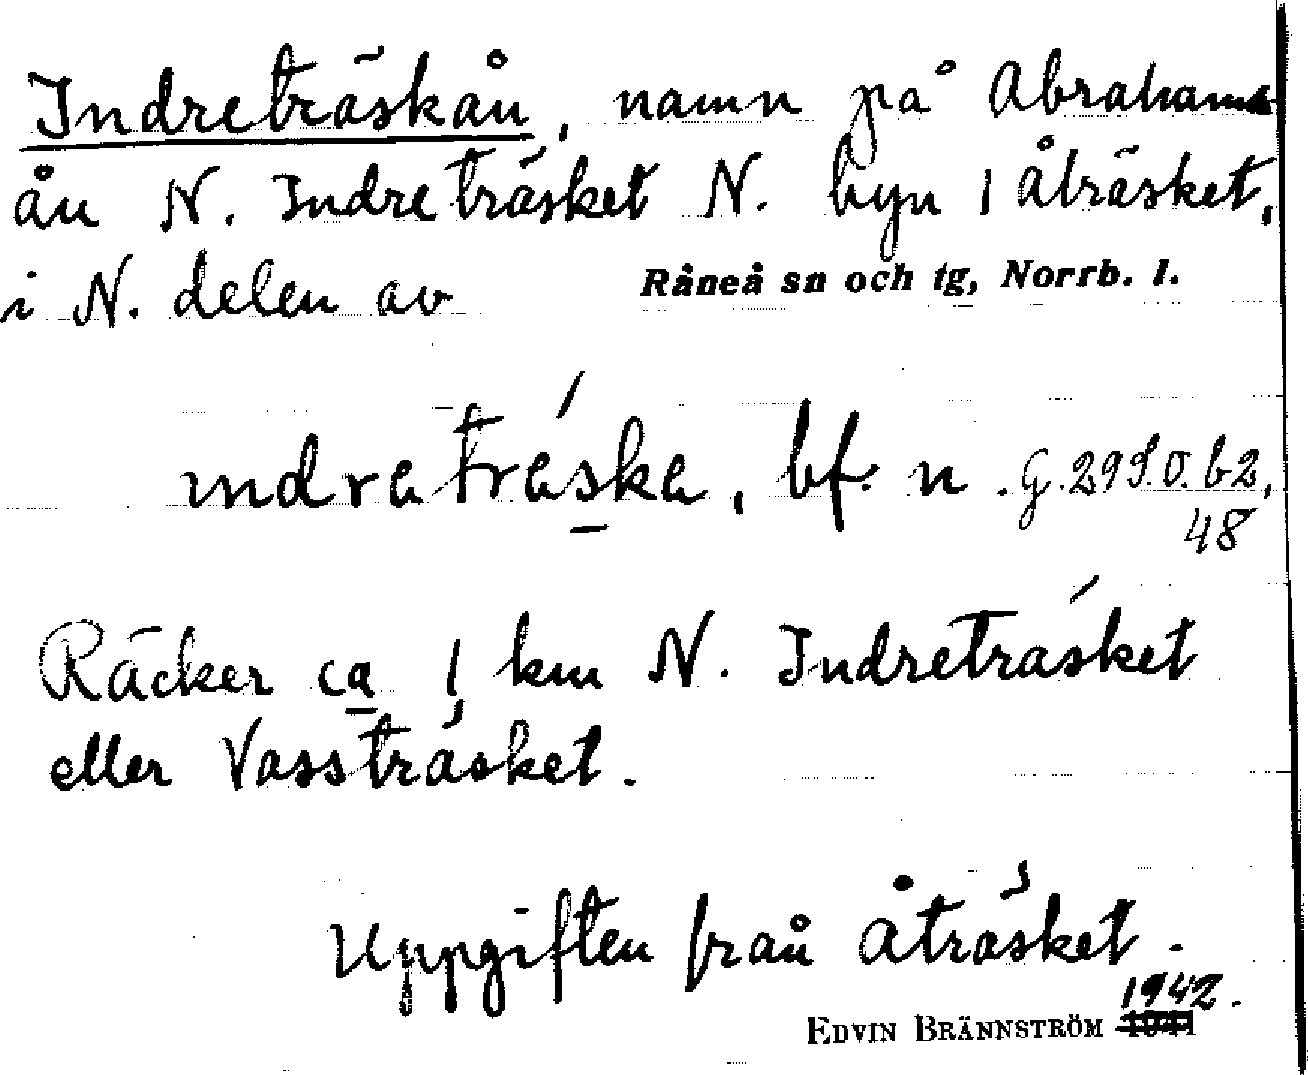 Indreträskån, namn på Abrahams-
ån N. Indreträsket N. byn i Åträsket,
i N. delen av Råneå sn och tg, Norrb. l.
ındratráska, bf. n. G.
48
Räcker ca 1 km N. Indreträsket
eller Vassträsket.
Uppgiften från Åträsket.
1942.
EDVIN BRÄNNSTRÖM 1941